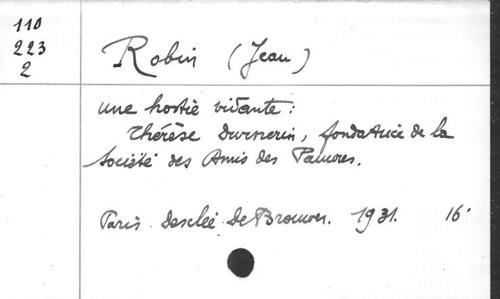 110
223
2
Robin (Jean)
une hostie vivante :
Thérèse Durnerin, fondatrice de la
Société des Amis des Pauvres.
Paris. Desclée De Brouwer. 1931. 16°